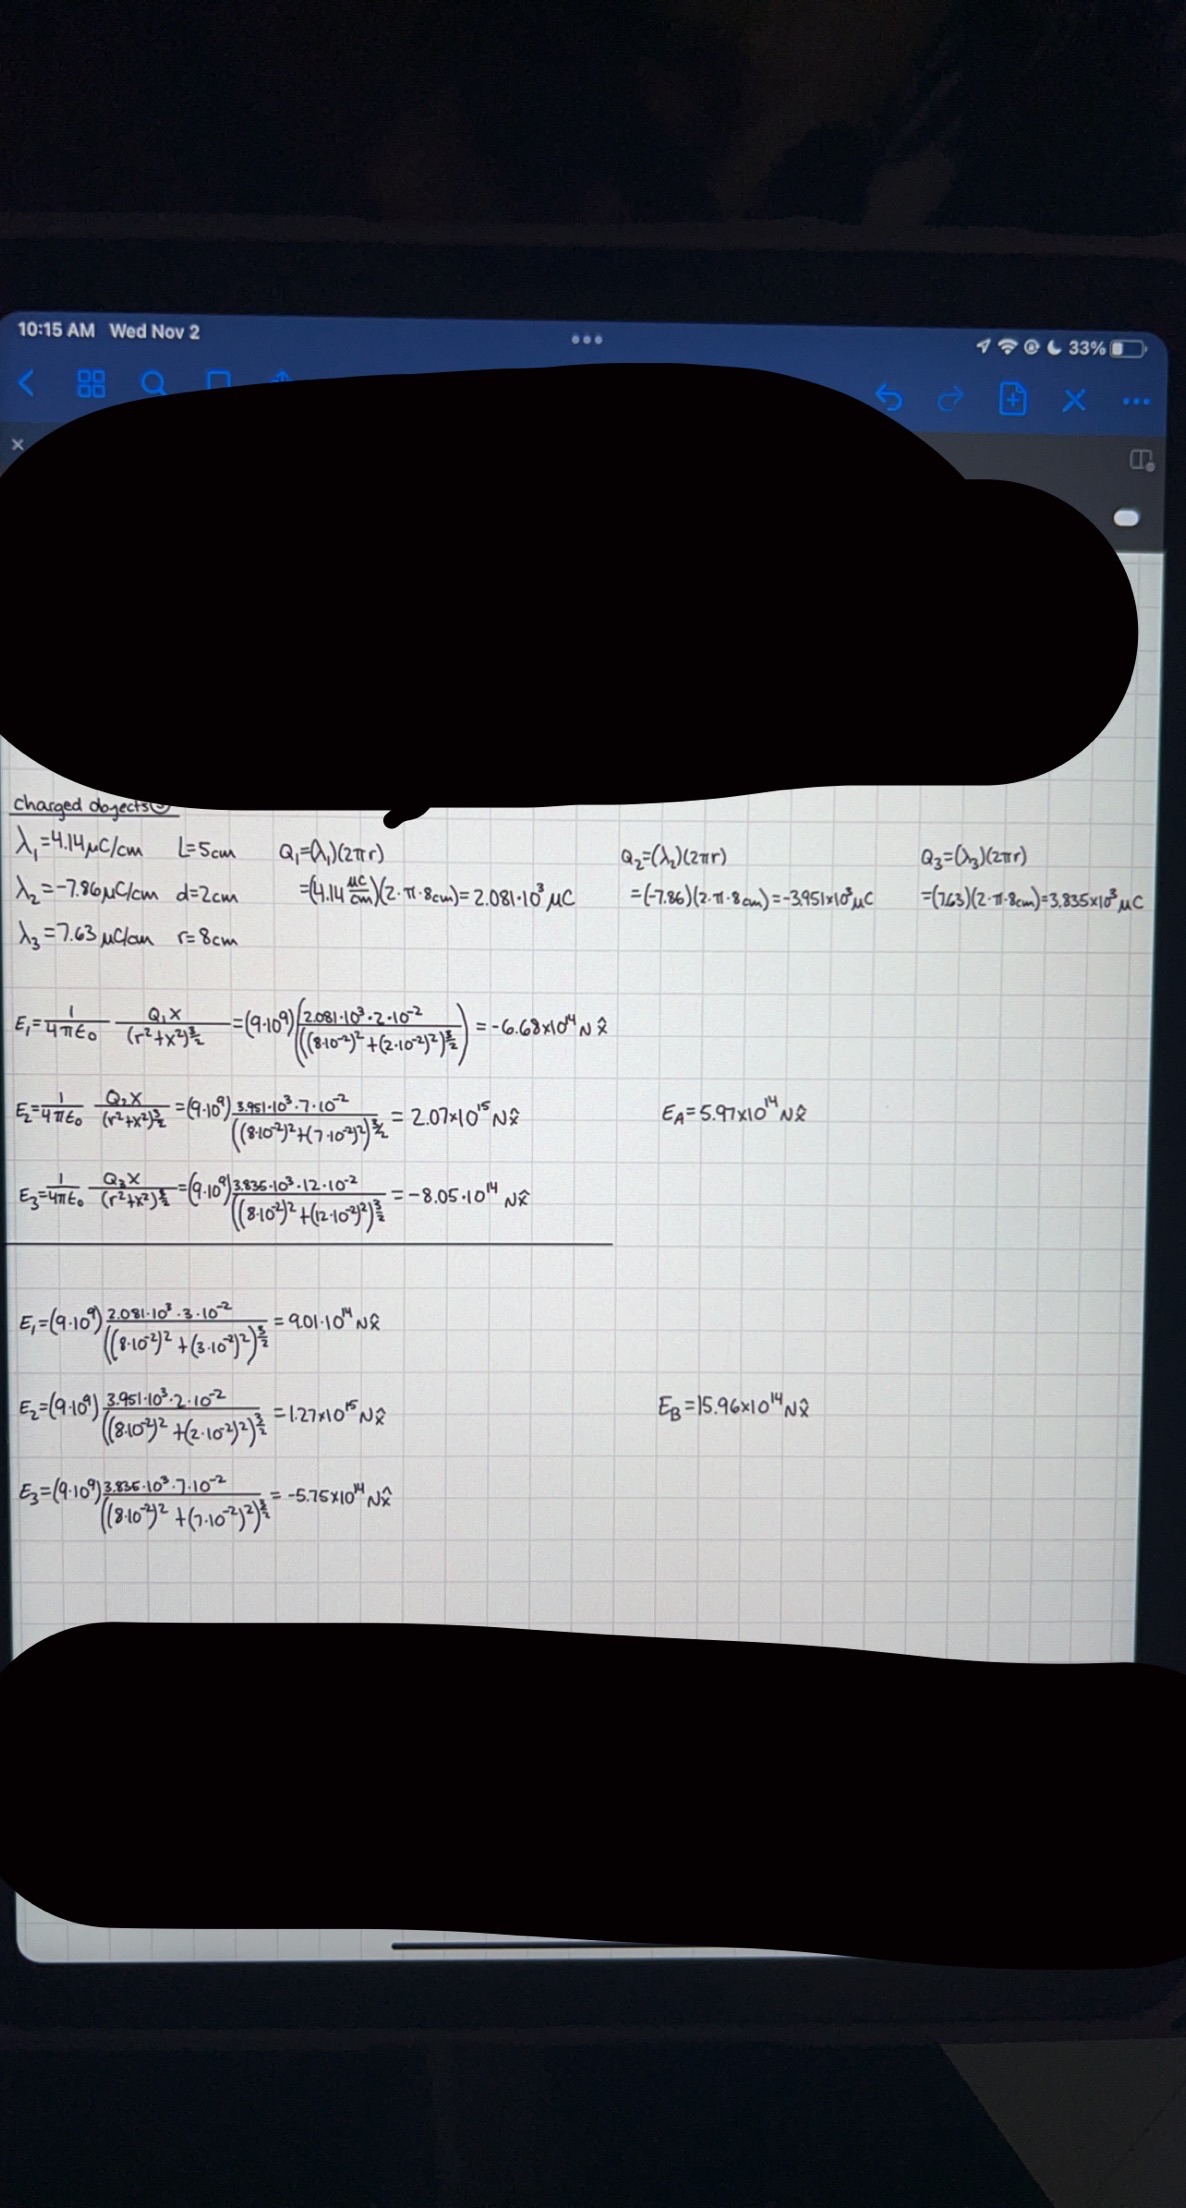 10:15 AM Wed Nov 2
33%
charged objects
λ₁=4.14μC/cm L=5cm Q₁=(λ₁)(2πr) Q₂=(λ₂)(2πr) Q₃=(λ₃)(2πr)
λ₂=-7.86μC/cm d=2cm =(4.14 μC/cm)(2·π·8cm)=2.081·10³ μC =(-7.86)(2·π·8cm)=-3.951×10³μC =(7.63)(2·π·8cm)=3.835×10³ μC
λ₃=7.63 μC/cm r=8cm
E₁=1/4πε₀ Q₁X/(r²+x²)^3/2 =(9·10⁹)(2.081·10³·2·10⁻²/((8·10⁻²)²+(2·10⁻²)²)^3/2) = -6.68×10¹⁴ N x̂
E₂=1/4πε₀ Q₂X/(r²+x²)^3/2 =(9·10⁹) 3.951·10³·7·10⁻²/((8·10⁻²)²+(7·10⁻²)²)^3/2 = 2.07×10¹⁵ N x̂ E_A=5.97×10¹⁴ N x̂
E₃=1/4πε₀ Q₃X/(r²+x²)^3/2 =(9·10⁹) 3.835·10³·12·10⁻²/((8·10⁻²)²+(12·10⁻²)²)^3/2 = -8.05·10¹⁴ N x̂
E₁=(9·10⁹) 2.081·10³·3·10⁻²/((8·10⁻²)²+(3·10⁻²)²)^3/2 = 9.01·10¹⁴ N x̂
E₂=(9·10⁹) 3.951·10³·2·10⁻²/((8·10⁻²)²+(2·10⁻²)²)^3/2 =1.27×10¹⁵ N x̂ E_B=15.96×10¹⁴ N x̂
E₃=(9·10⁹) 3.835·10³·7·10⁻²/((8·10⁻²)²+(7·10⁻²)²)^3/2 = -5.75×10¹⁴ N x̂